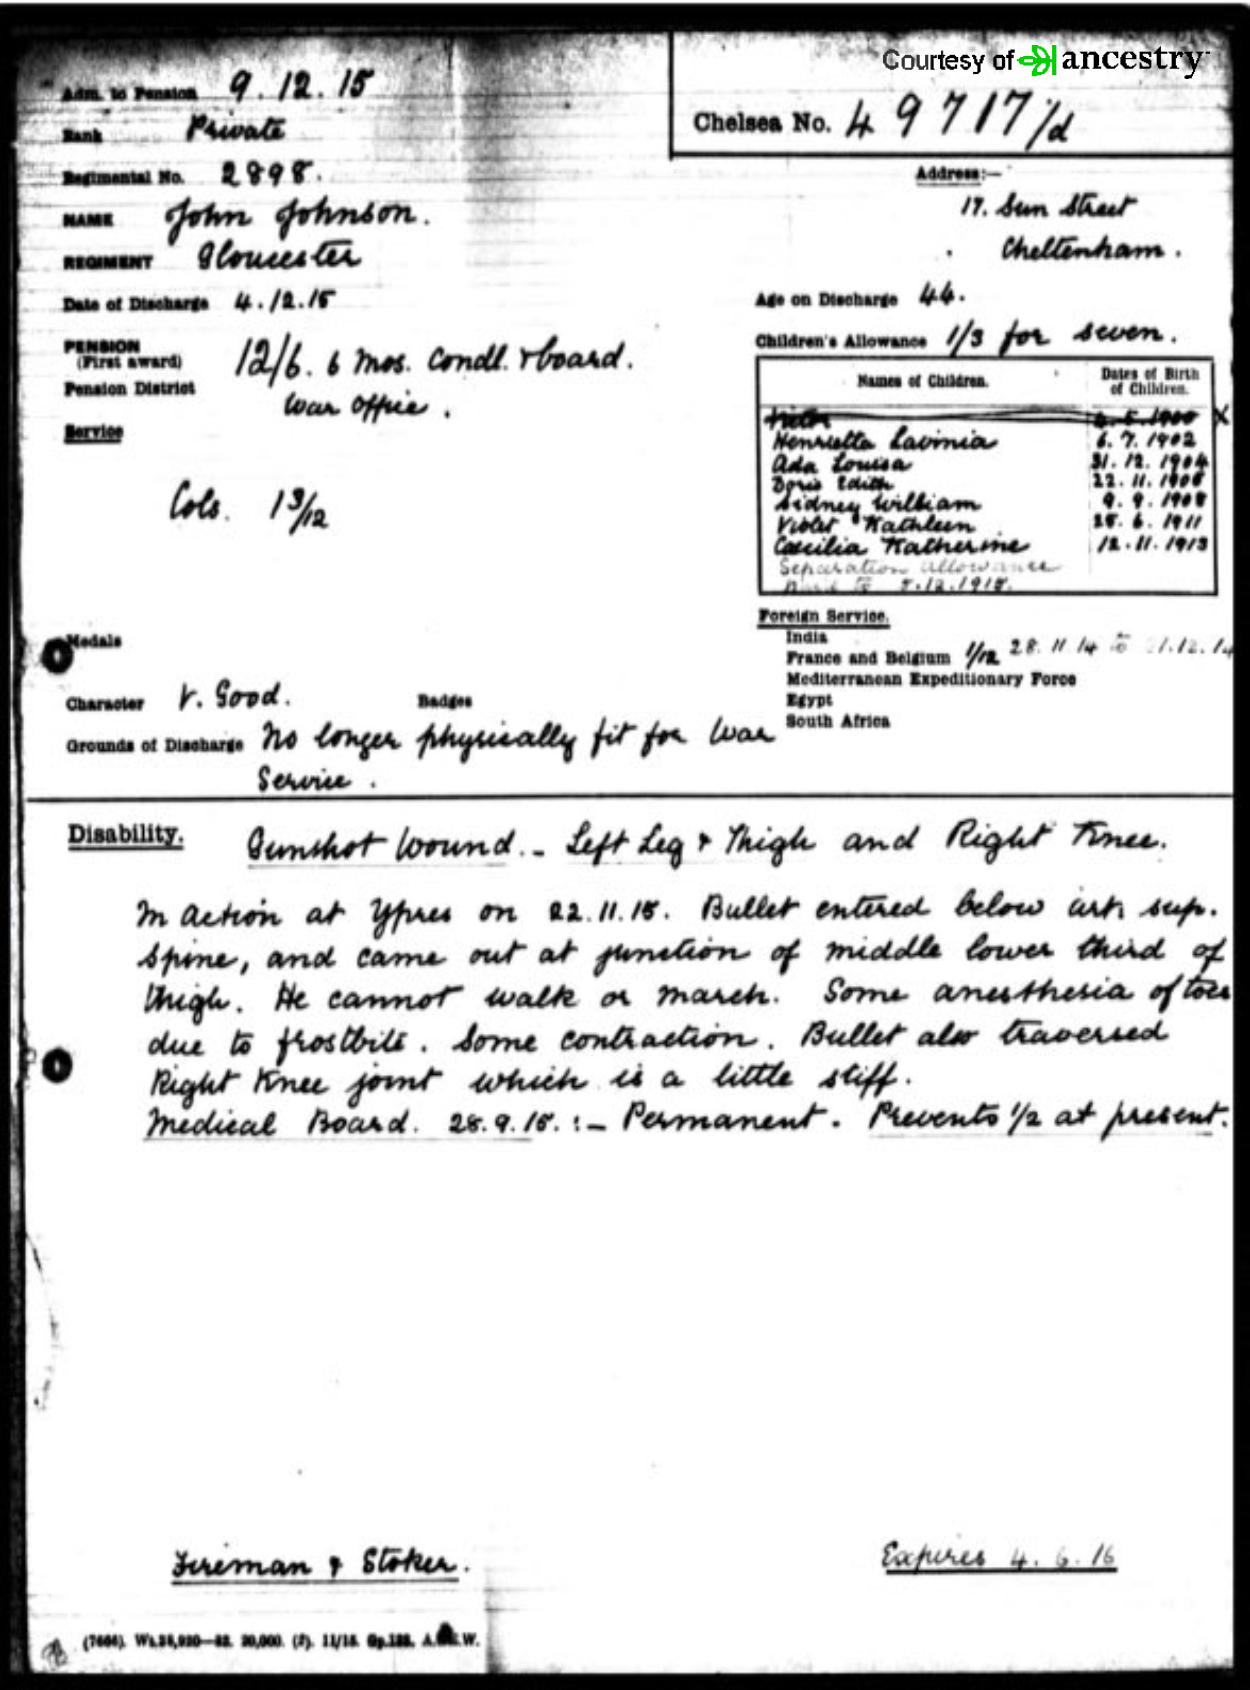 Courtesy of ancestry
Adm. to Pension 9.12.15
Chelsea No. 49717/d
Rank Private
Regimental No. 2898.
Address:—
17. Sun Street
Cheltenham.
NAME John Johnson.
REGIMENT Gloucester
Date of Discharge 4.12.15
Age on Discharge 44.
Children's Allowance 1/3 for seven.
PENSION
(First award) 12/6. 6 mos. Condl. & board.
Pension District War Office.
Service
Cols. 1 3/12
Names of Children. Dates of Birth of Children.
Victor 1900 X
Henrietta Lavinia 6.7.1902
Ada Louisa 31.12.1904
Doris Edith 22.11.1906
Sidney William 9.9.1908
Violet Kathleen 25.6.1911
Caecilia Katherine 12.11.1913
Separation allowance
Paid to 5.12.1915.
Foreign Service.
India
France and Belgium 1/12 28.11.14 to 12.14
Mediterranean Expeditionary Force
Egypt
South Africa
Medals
Character V. Good. Badges
Grounds of Discharge No longer physically fit for War
Service.
Disability. Gunshot Wound. - Left Leg & Thigh and Right Knee.
In action at Ypres on 22.11.15. Bullet entered below sup.
Spine, and came out at junction of middle lower third of
thigh. He cannot walk or march. Some anesthesia of toes
due to frostbite. Some contraction. Bullet also traversed
Right Knee joint which is a little stiff.
Medical Board. 28.9.15. :- Permanent. Prevents 1/2 at present.
Fireman & Stoker.
Expires 4.6.16
(7666). Wt. 20,000. (2). 11/15. Gp.122. A. W.